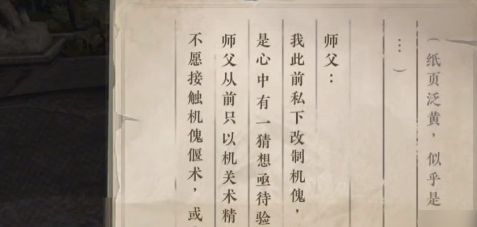 （纸页泛黄，似乎是
…）
师父：
我此前私下改制机傀，
是心中有一猜想亟待验
师父从前只以机关术精
不愿接触机傀偃术，或